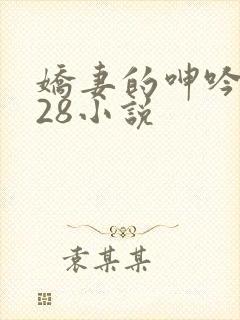 嬌妻的呻吟
28小說
袁某某